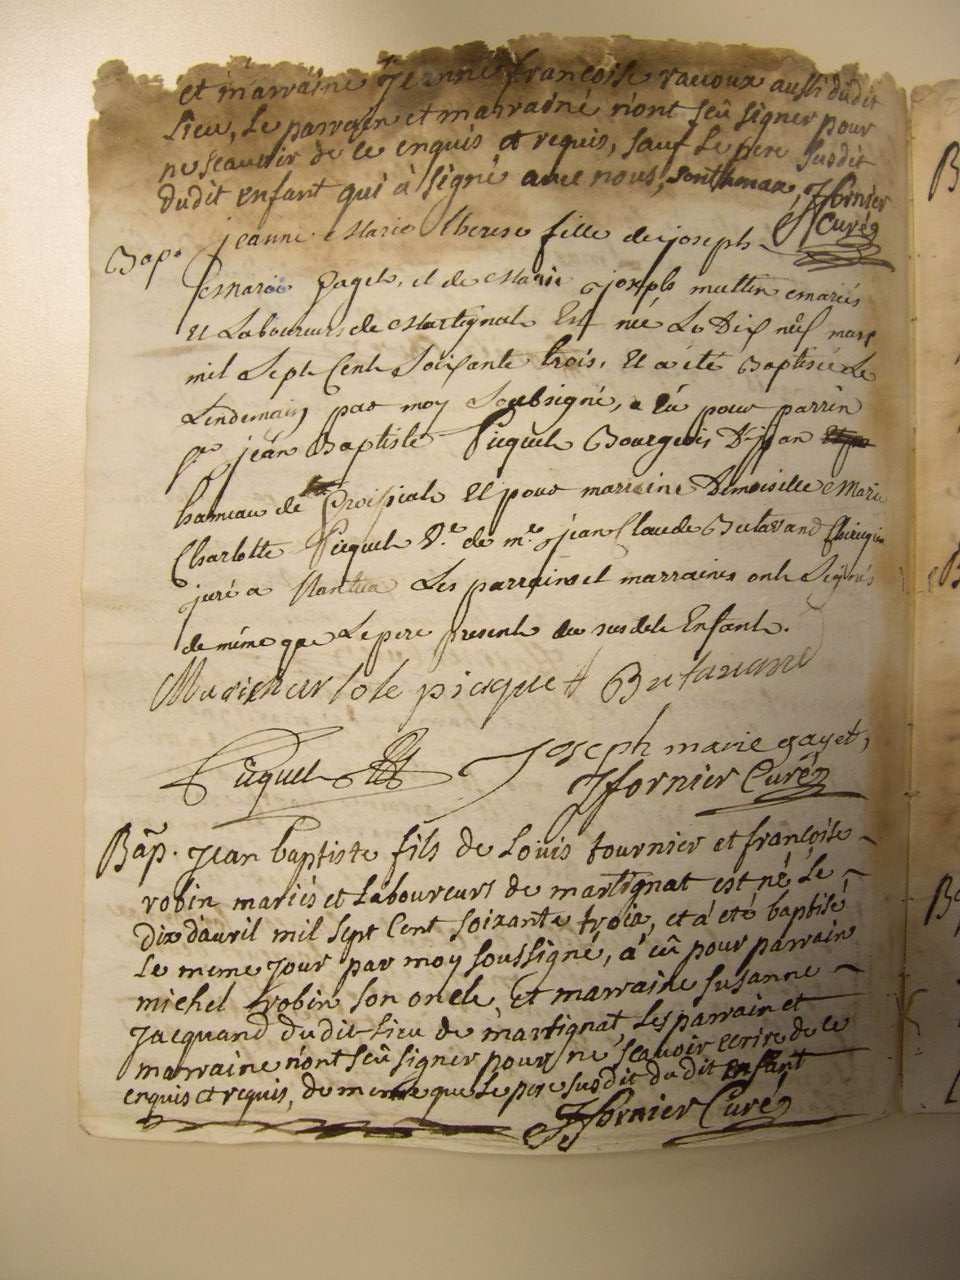 et marraine Jeanne françoise ravoux aussi dudit
Lieu, Le parrein et marrainé n'ont sçû signer pour
ne sçauoir de ce enquis et requis, sauf Le pere susdit
dudit enfant qui à signé avec nous, Jfornier
Curé
Bap. jeanne Marie Therese fille de joseph
Marie Gayet, et de Marie joseph muttin mariés
et Laboureurs de Martignat Est née Le Dix neuf mars
mil Sept Cent Soixante trois, et a été Baptisée Le
Lendemain par moy Soubsigné, a Eu pour parrin
Sr jean Baptiste Picquet Bourgeois
hameau de et pour marraine Demoiselle Marie
Charlotte Picquet de me jean Claude Butavand Chirurgien
juré a Nantua Les parrains et marraines ont Signés
de même que Le pere present du susdit Enfant.
Marie charlote picquet Butavand
Picquet Joseph marie gayet,
Jfornier Curé
Bap. Jean baptiste fils de Loüis tournier et françoise
robin mariés et Laboureurs de martignat est né Le
dix d'auril mil sept Cent soixante trois, et à eté baptisé
Le meme jour par moy soussigné, à eû pour parrain
michel robin son oncle, et marraine susanne
Jacquand dudit Lieu de martignat, Les parrain et
marraine n'ont sçû signer pour ne sçavoir ecrire de ce
enquis et requis, de meme que Le pere susdit du dit enfant
Jfornier Curé